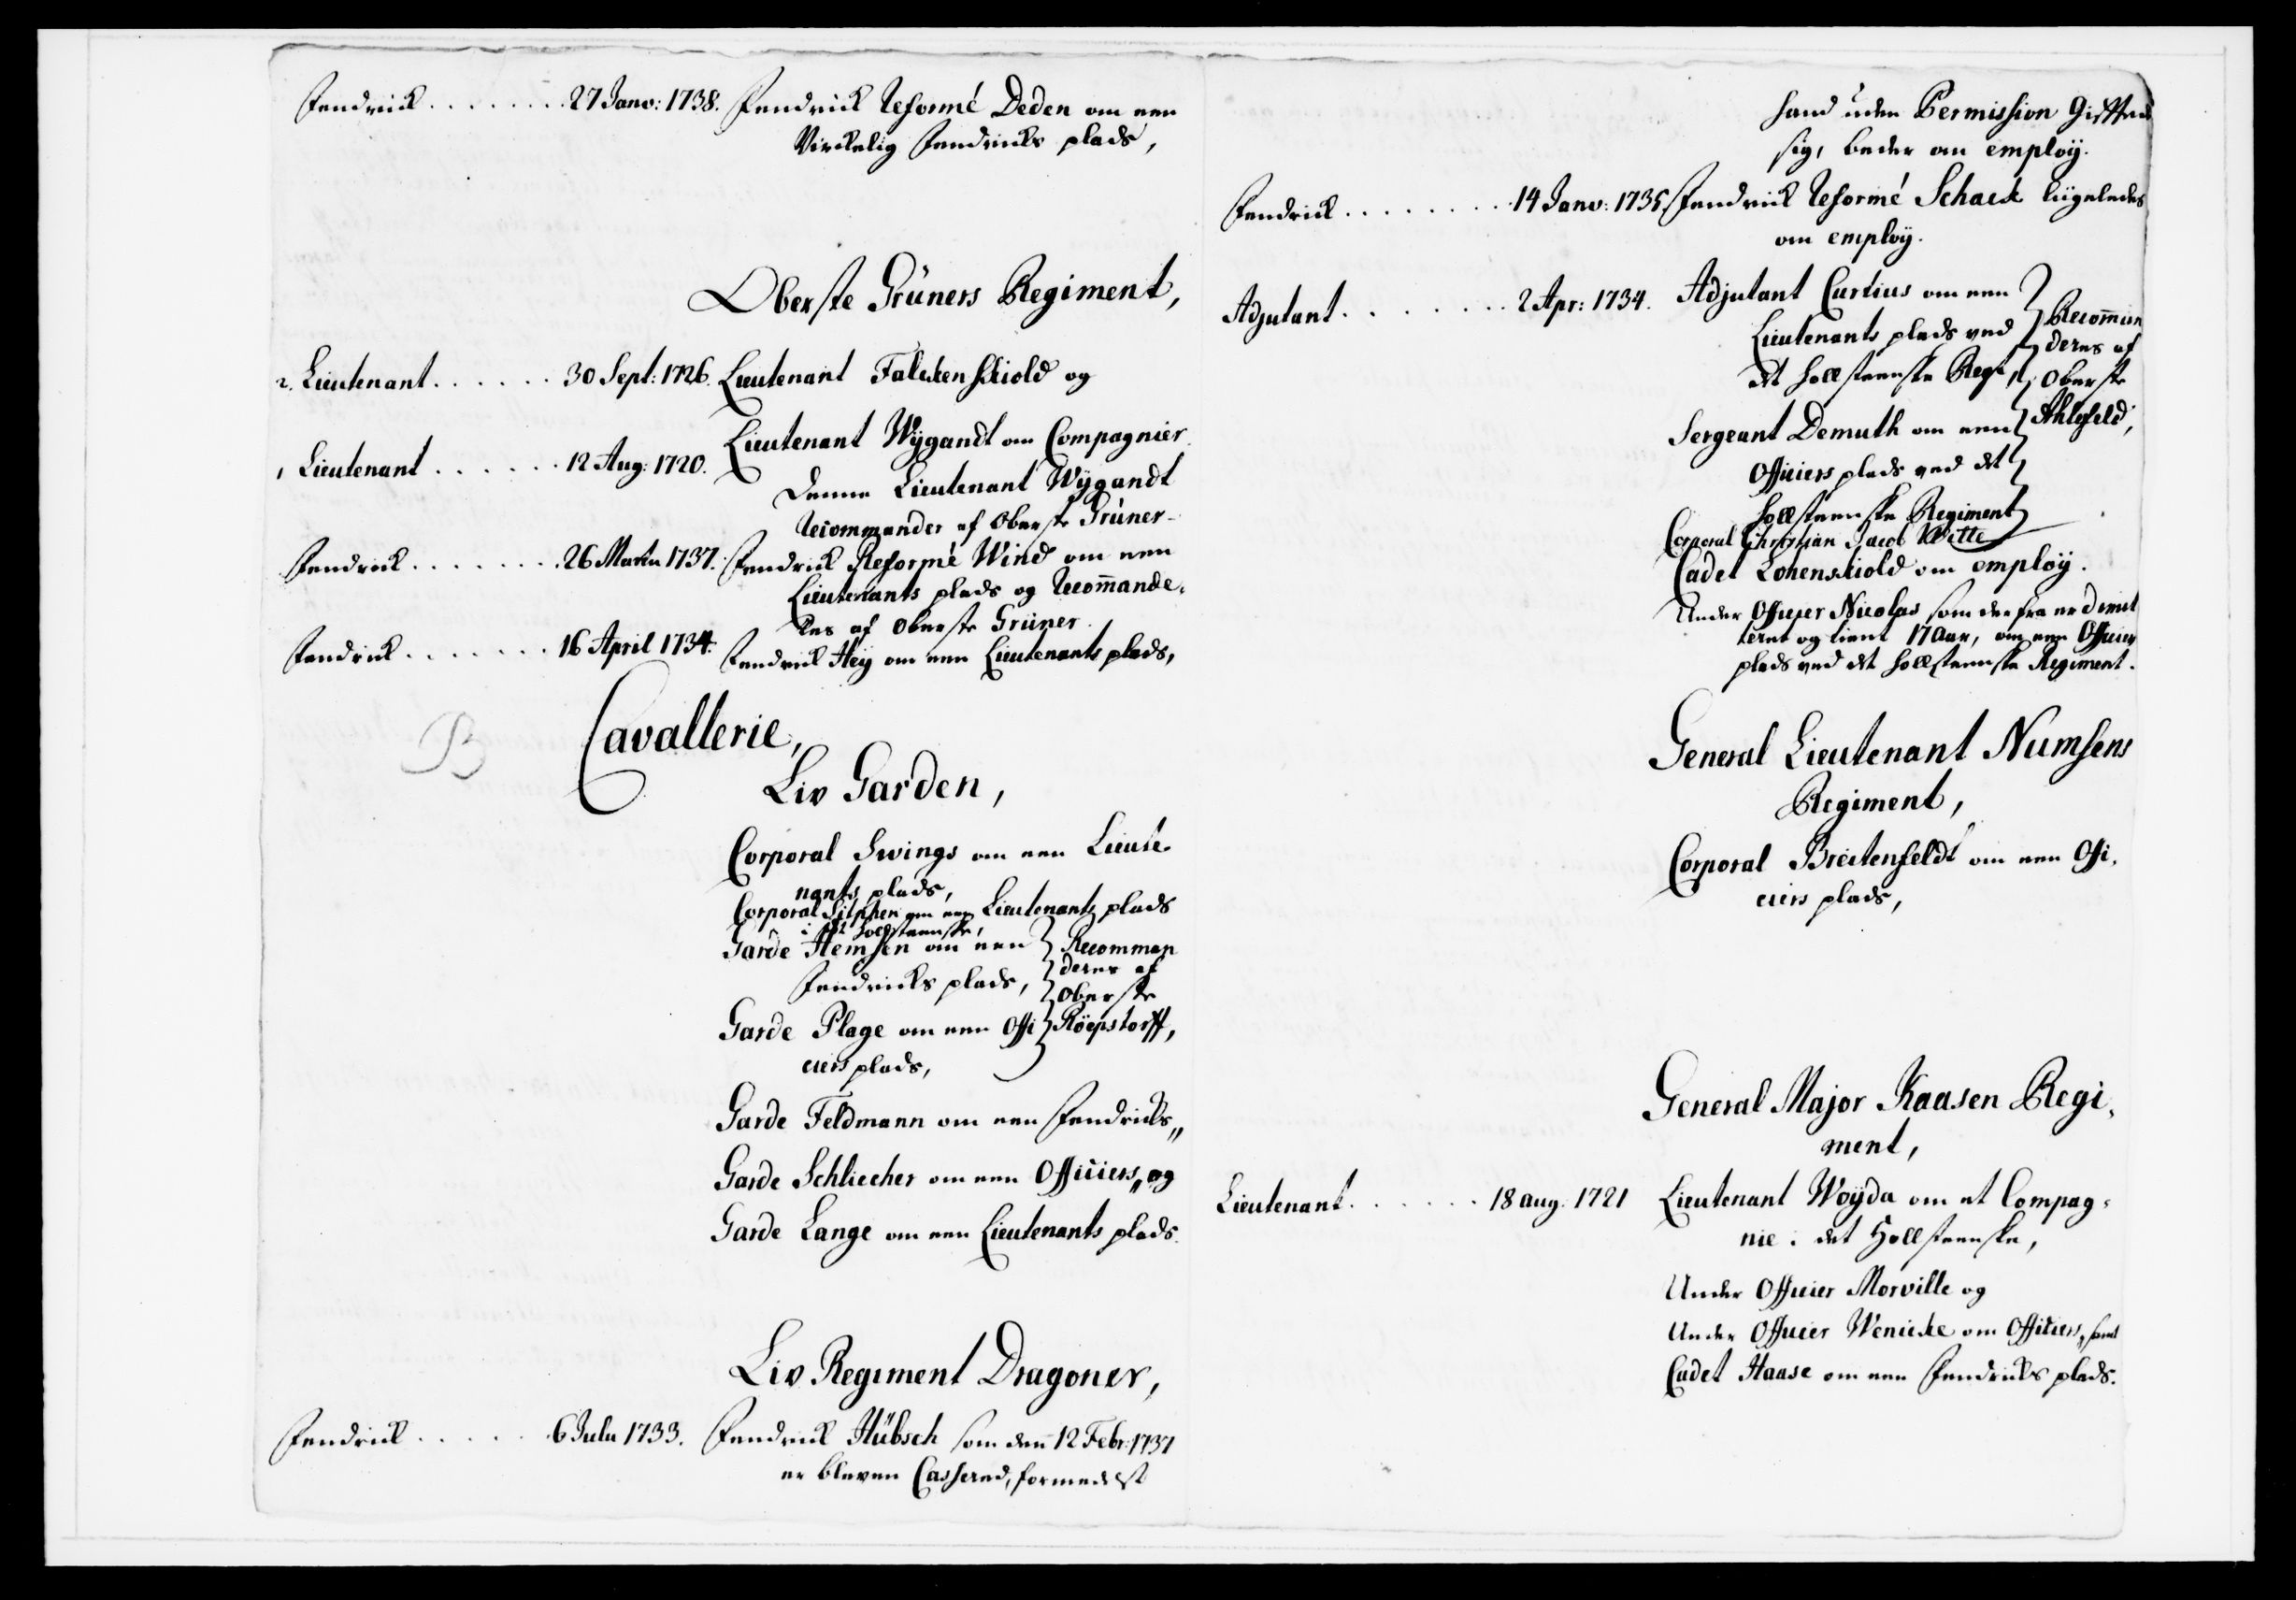 Fendrick . . . . . . . 27 Janv: 1738. Fendrick Reformé Deden om een
Virckelig Fendricks plads,
Oberste Grüners Regiment,
2. Lieutenant . . . . . . 30 Sept: 1726. Lieutenant Falckenskiold og
1 Lieutenant . . . . . . 12 Aug: 1720. Lieutenant Wÿgandt om Compagnier.
Denne Lieutenant Wÿgandt
Recommander af Oberste Grüner-
Fendrick . . . . . . . 26 Martii 1737. Fendrick Reformé Wind om een
Lieutenants plads og Recom̄ande,
res af Oberste Grüner.
Fendrick . . . . . . . 16 April 1734. Fendrick Heÿ om een Lieutenants plads,
B Cavallerie,
Liv Garden,
Corporal Swings om een Lieute
nants plads,
Corporal Sitphen om een Lieutenants plads
i det Hollsteenske,
Garde Hemsen om een
Fendricks plads,
Recomman
deres af
Oberste
Röepstorff,
Garde Plage om een Offi
ciers plads,
Garde Feldmann om een Fendricks,,
Garde Schliecher om een Officiers,, og
Garde Lange om een Lieutenants plads.
Liv Regiment Dragoner,
Fendrick . . . . . 6 Julii 1733. Fendrick Hübsch som den 12 Febr: 1737
er bleven Cassered, formedelst
hand uden Permission Gifftede
sig, beder om employ.
Fendrick . . . . . . . . 14 Janv: 1735. Fendrick Reformé Schack liigeledes
om employ.
Adjutant . . . . . . . 2 Apr: 1734. Adjutant Curtius om een
Lieutenants plads ved
det Hollsteenske Regt,
Sergeant Demuth om een
Officiers plads ved det
Hollsteenske Regiment
Recom̄en
deres af
Oberste
Ahlefeld,
Corporal Christian Jacob Witte
Cadet Lohenskiold om employ.
Under Officier Nicolas som derfra er dimit
teret og tient 17 Aar, om een Officier
plads ved det Hollsteenske Regiment.
General Lieutenant Numsens
Regiment,
Corporal Breitenfeldt om een Offi,
ciers plads,
General Major Kaasen Regi,
ment,
Lieutenant . . . . . . 18 aug. 1721 Lieutenant Woÿda om et Compag,
nie i det Hollsteenske,
Under Officier Morville og
Under Officier Wenicke om Officiers,, samt
Cadet Haase om een Fendricks plads.